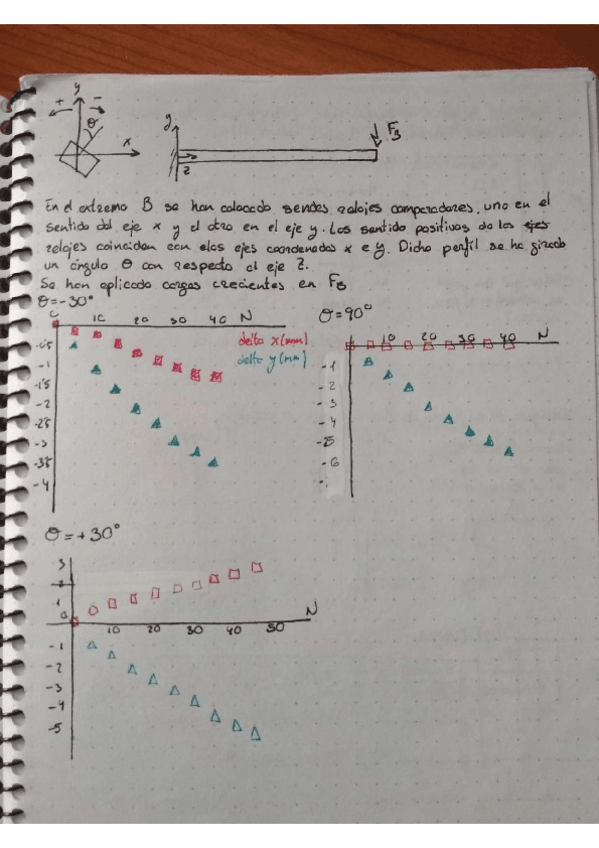 y
+ -
θ
x
y
F_B
z
En el extremo B se han colocado sendos relojes comparadores, uno en el
sentido del eje x y el otro en el eje y. Los sentido positivos de los ejes
relojes coinciden con elos ejes coordenados x e y. Dicho perfil se ha girado
un ángulo θ con respecto al eje z.
Se han aplicado cargas crecientes en F_B
θ=-30°
10 20 30 40 N
delta x (mm)
delta y (mm)
-0'5
-1
-1'5
-2
-2'5
-3
-3'5
-4
θ=90°
10 20 30 40 N
-1
-2
-3
-4
-5
-6
θ=+30°
3
2
1
0
N
10 20 30 40 50
-1
-2
-3
-4
-5